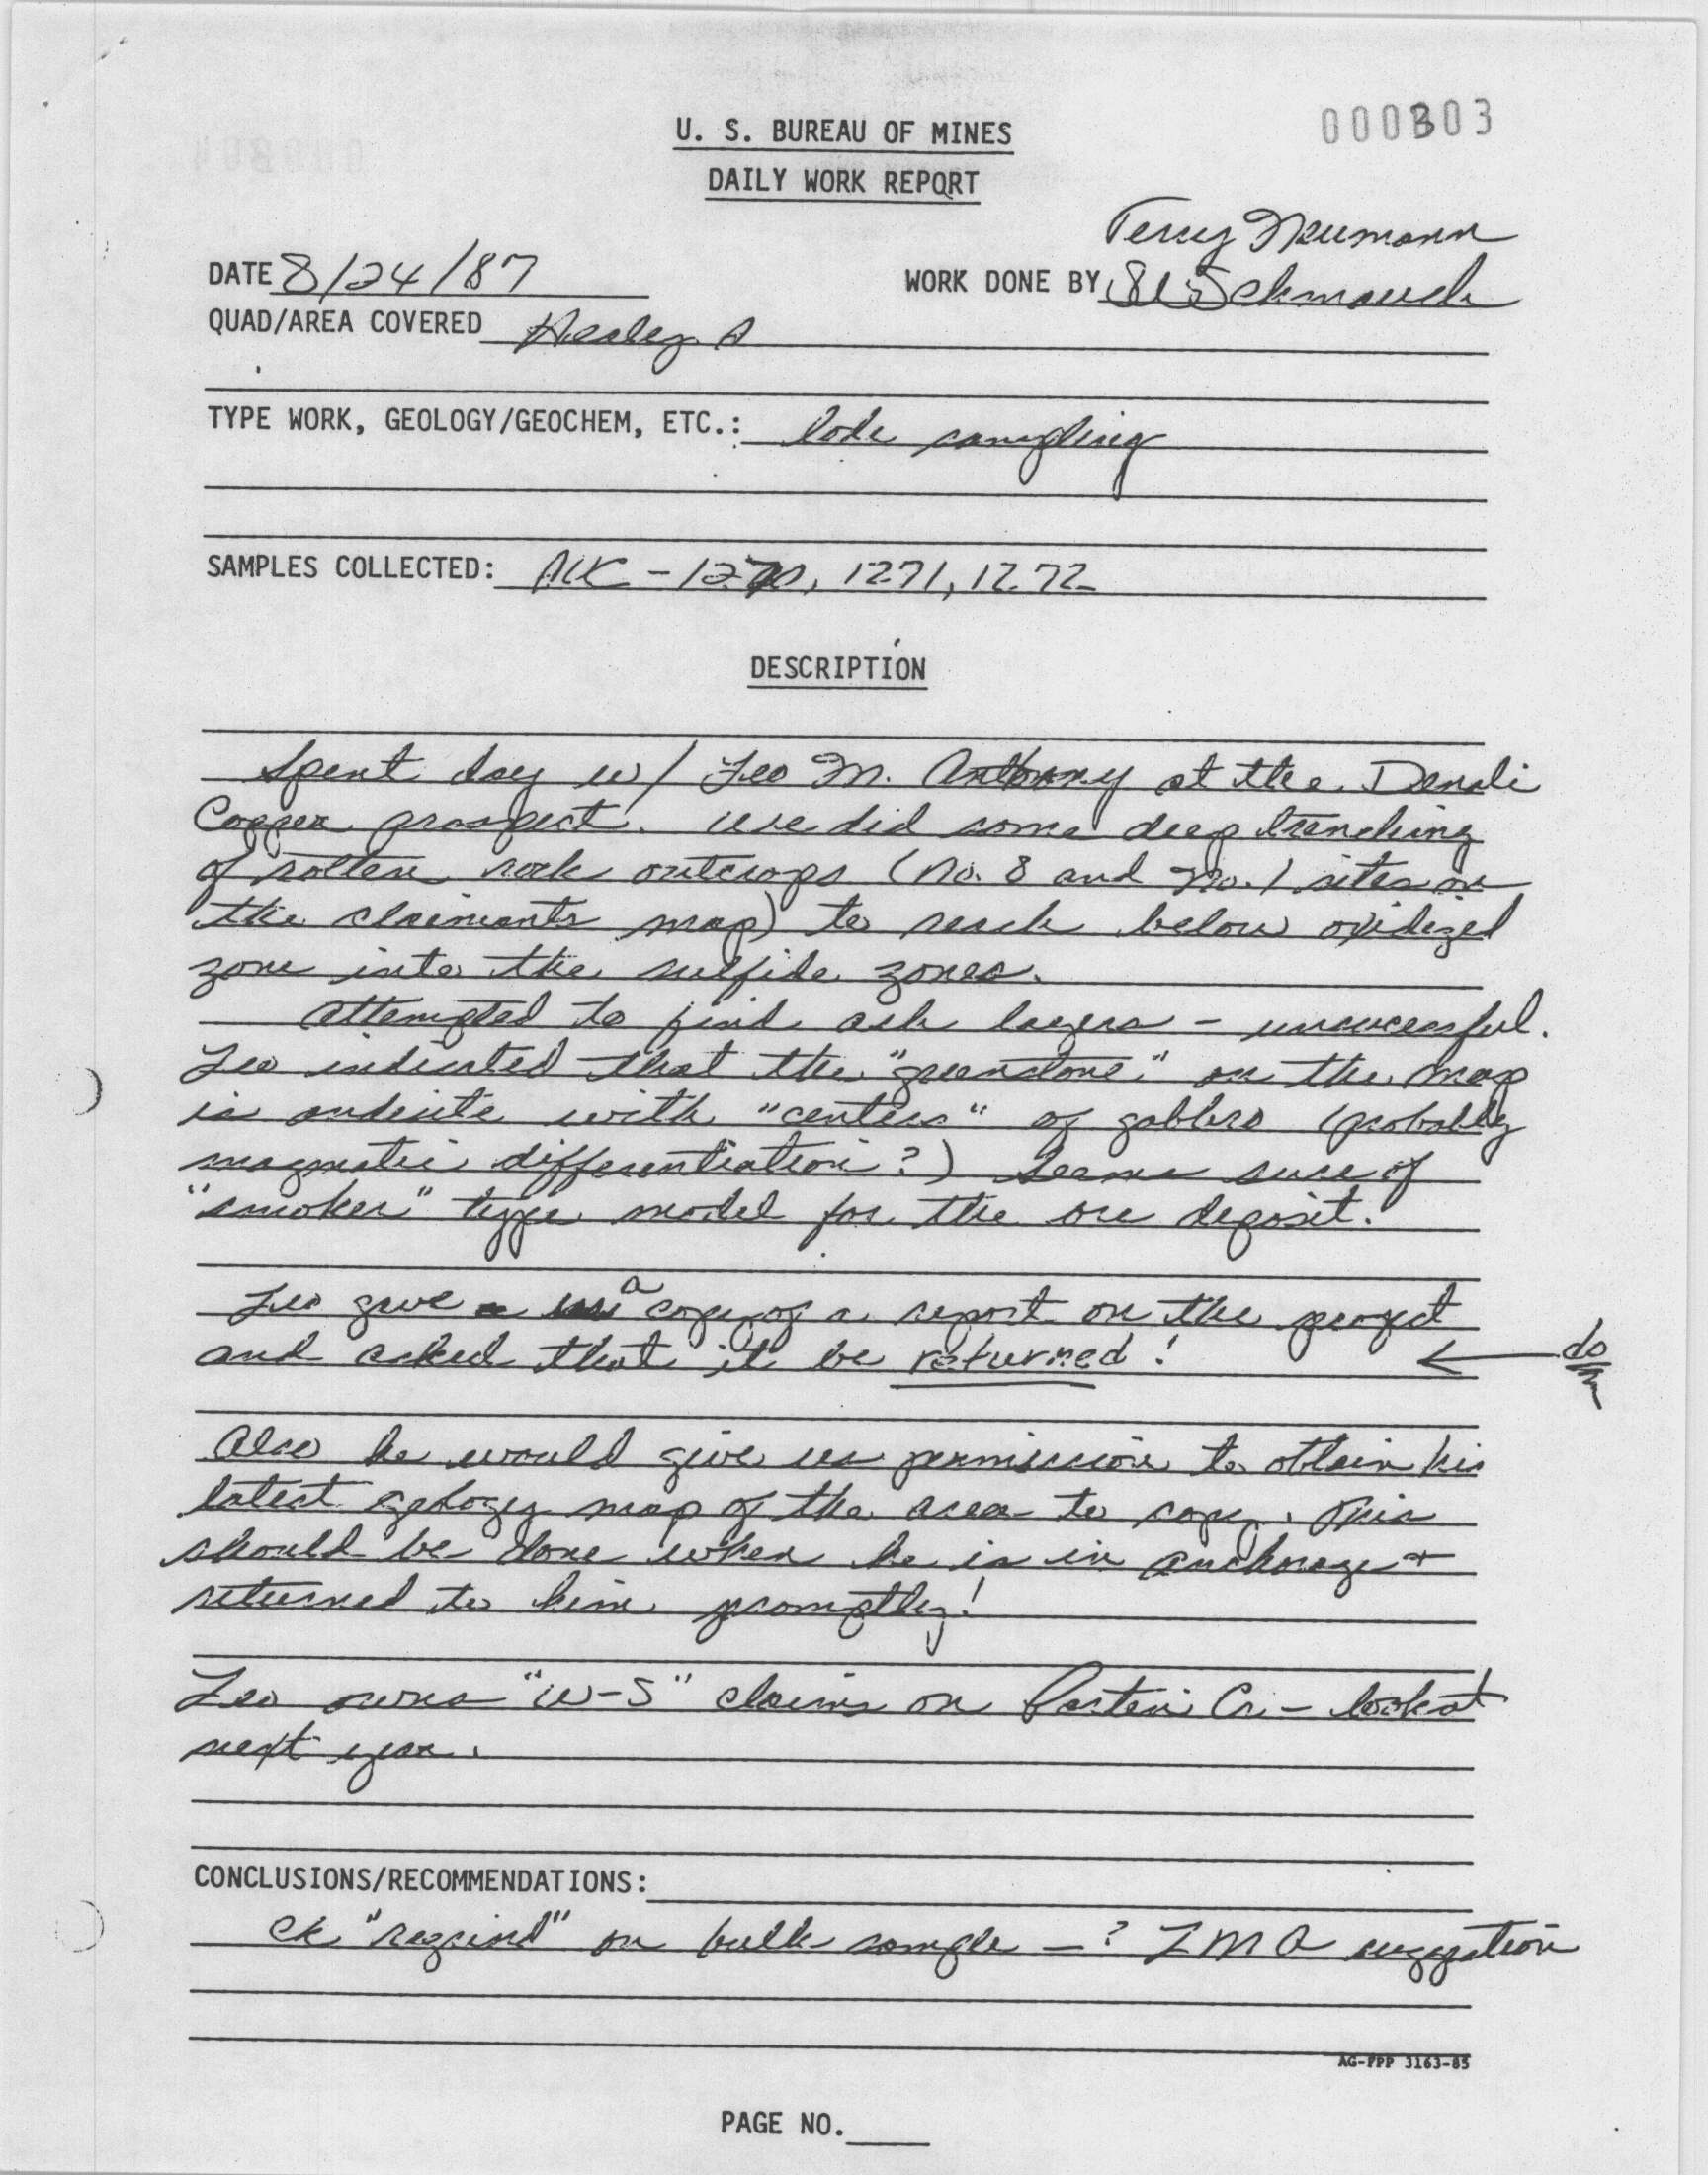 000303
U. S. BUREAU OF MINES
DAILY WORK REPORT
Terry Neumann
DATE 8/24/87 WORK DONE BY Schmauch
QUAD/AREA COVERED Healey A
TYPE WORK, GEOLOGY/GEOCHEM, ETC.: lode sampling
SAMPLES COLLECTED: AK - 1270, 1271, 1272
DESCRIPTION
Spent day w/ Leo M. Anthony at the Denali
Copper prospect. We did some deep trenching
of rotten rock outcrops (no. 8 and no. 1 sites on
the claimants map) to reach below oxidized
zone into the sulfide zones.
Attempted to find ash layers - unsuccessful.
Leo indicated that the "greenstone" on the map
is andesite with "centers" of gabbro (probably
magmatic differentiation?) Seems sure of
"smoker" type model for the ore deposit.
Leo gave a copy of a report on the project
and asked that it be returned!
do
Also he would give us permission to obtain his
latest geology map of the area to copy. This
should be done when he is in Anchorage +
returned to him promptly!
Leo owns "W-S" claims on Cr. - look at
next year.
CONCLUSIONS/RECOMMENDATIONS:
Ck on bulk sample - ? LMA suggestion
AG-PPP 3163-85
PAGE NO.